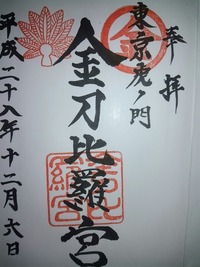 奉拝
東京虎ノ門
金刀比羅宮
平成二十八年十二月六日